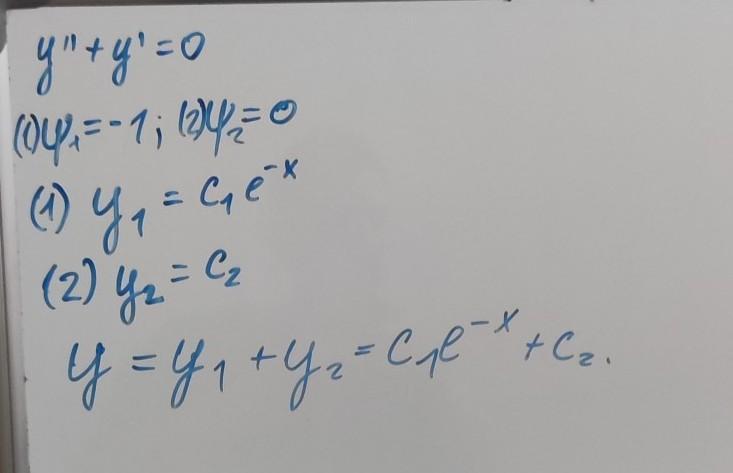 y'' + y' = 0
(1) ψ₁ = -1; (2) ψ₂ = 0
(1) y₁ = C₁ e⁻ˣ
(2) y₂ = C₂
y = y₁ + y₂ = C₁e⁻ˣ + C₂.